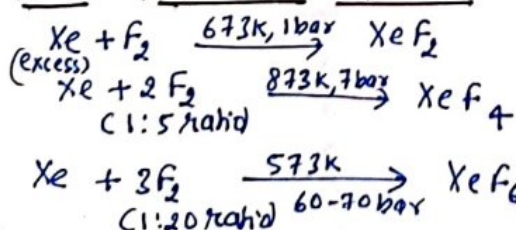 Xe + F2 673K, 1bar → XeF2
(excess)
Xe + 2F2 873K, 7bar → XeF4
(1:5 ratio)
Xe + 3F2 573K → XeF6
(1:20 ratio) 60-70bar